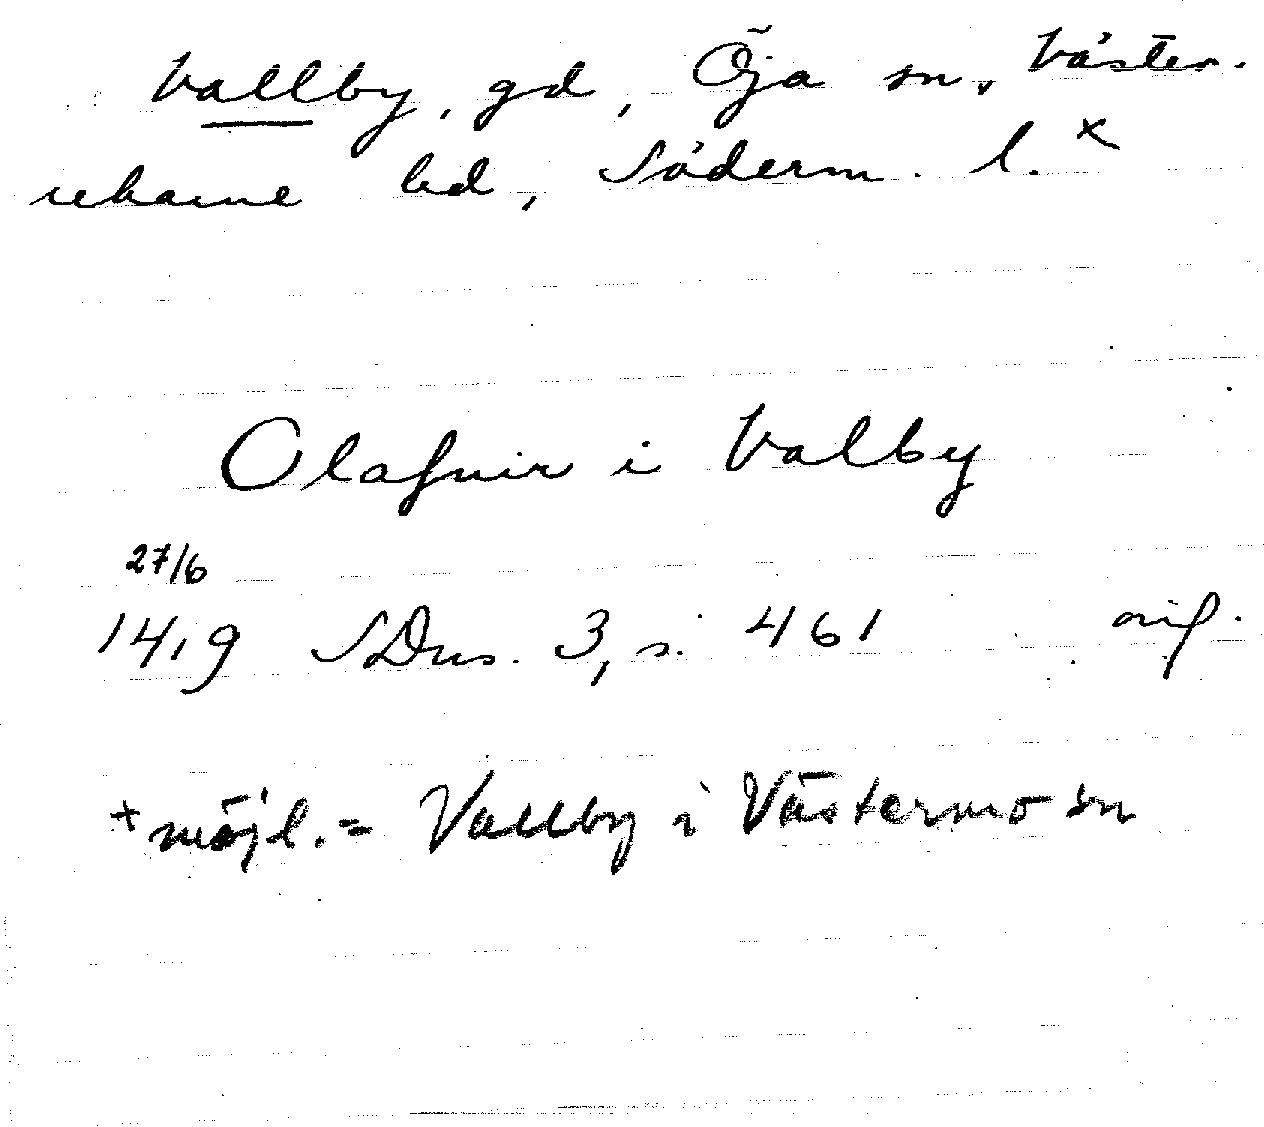 Vallby, gd, Öja sn, Väster-
rekarne hd, Söderm. l.x
Olafuir i Valby
27/6
1419 SDns. 3, s. 461 orig.
+ möjl. = Vallby i Västermo sn